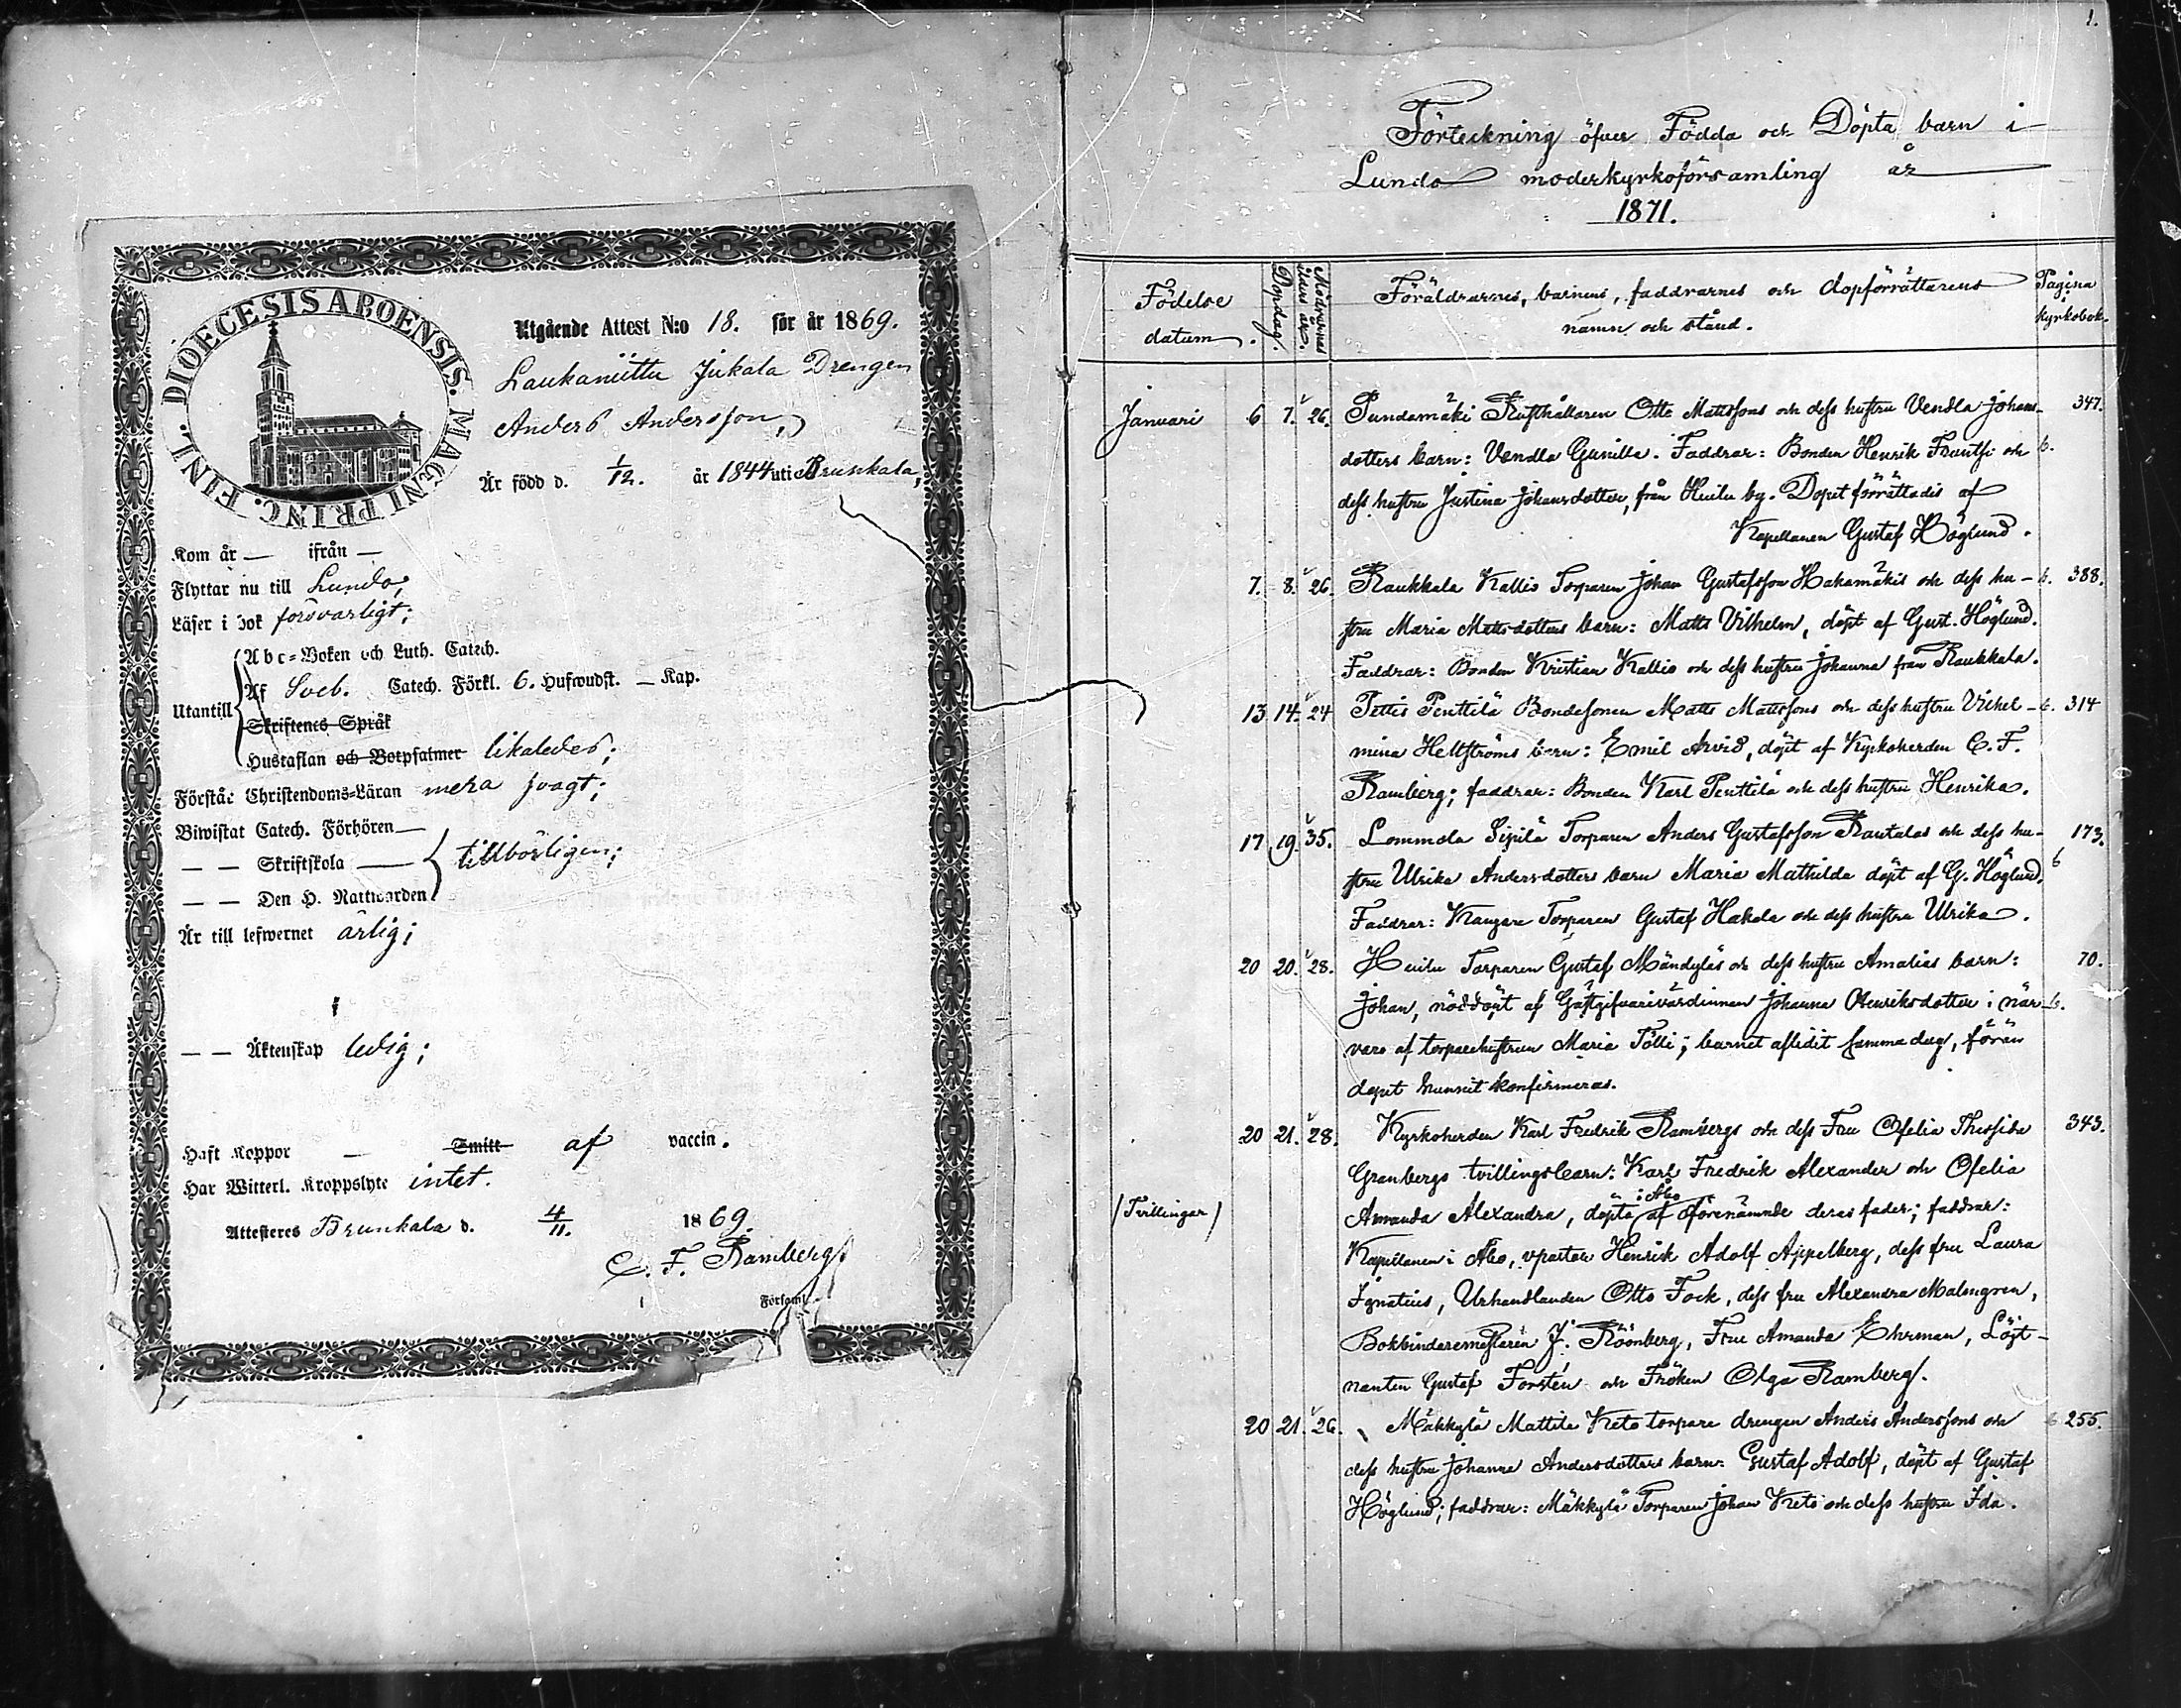 DIOECESIS ABOENSIS. MAGNI PRINC. FINL.
Utgående Attest N:o 18. för år 1869.
Laukaniittu Jukala Drengen
Anders Andersson,
Är född d. 1/12. år 1844 uti Brunkala,
Kom år — ifrån —
Flyttar nu till Lundo,
Läser i bok försvarligt;
Utantill
Abc-Boken och Luth. Catech.
Af Sveb. Catech. Förkl. 6. Hufwudst. — Kap.
Skriftenes Språk
Hustaflan och Botpsalmer likaledes;
Förstår Christendoms-Läran mera svagt;
Biwistat Catech. Förhören —
— — Skriftskola — tillbörligen;
— — Den H. Nattwarden
Är till lefwernet ärlig;
— — Äktenskap ledig;
Haft Koppor — Smitt af vaccin.
Har Witterl. Kroppslyte intet.
Attesteres Brunkala d. 4/11. 1869.
C. F. Ramberg
Församl.
1.
Förteckning öfver Födda och Döpta barn i
Lundo moderkyrkoförsamling år
1871.
Födelse datum.
Dopdag.
Mödrarnas ålders år.
Föräldrarnes, barnens, faddrarnes och dopförrättarens
namn och stånd.
Pagina i kyrkobok.
Januari 6 7. 26. Pundamäki Rusthållaren Otto Mattssons och dess hustru Vendla Johans- 347.
dotters barn: Vendla Gunilla. Faddrar: Bonden Henrik Franssi och b.
dess hustru Justina Johansdotter, från Huilu by. Dopet förrättades af
Kapellanen Gustaf Höglund.
7. 8. 26. Raukkala Kallio Torparen Johan Gustafsson Hakamäkis och dess hu- b. 388.
stru Maria Mattsdotters barn: Matts Vilhelm, döpt af Gust. Höglund.
Faddrar: Bonden Kristian Kallio och dess hustru Johanna från Raukkala.
13 14. 24 Pettis Penttilä Bondesonen Matts Mattssons och dess hustru Vilhel- b. 314
mina Hellströms barn: Emil Arvid, döpt af Kyrkoherden C. F.
Ramberg; faddrar: Bonden Karl Penttilä och dess hustru Henrika.
17 19. 35. Lommola Sipilä Torparen Anders Gustafsson Rautalas och dess hu- 173.
stru Ulrika Andersdotters barn Maria Mathilda döpt af G. Höglund. b
Faddrar: Kangare Torparen Gustaf Hakola och dess hustru Ulrika.
20 20. 28. Huilu Torparen Gustaf Mändyläs och dess hustru Amalias barn: 70.
Johan, nöddöpt af Gästgifvarivärdinnan Johanna Henriksdotter i när- b.
varo af torparehustrun Maria Tölli; barnet aflidit samma dag, förän
dopet hunnit konfirmeras.
20 21. 28. Kyrkoherden Karl Fredrik Rambergs och dess Fru Ofelia 343.
Granbergs tvillingsbarn: Karl Fredrik Alexander och Ofelia
i Åbo
(Tvillingar) Amanda Alexandra, döpta af förenämnde deras fader; faddrar:
Kapellanen i Åbo, vpastor Henrik Adolf Appelberg, dess fru Laura
Ignatius, Urhandlanden Otto Fock, dess fru Alexandra Malmgren,
Bokbindaremästaren J. Röönberg, Fru Amanda Ehrman, Löjt-
nanten Gustaf Forstén och Fröken Olga Ramberg.
20 21. 26. Mäkkylä Mattila Keto torpare drengen Anders Anderssons och b 255.
dess hustru Johanna Andersdotters barn: Gustaf Adolf, döpt af Gustaf
Höglund; faddrar: Mäkkylä Torparen Johan Keto och dess hustru Ida.